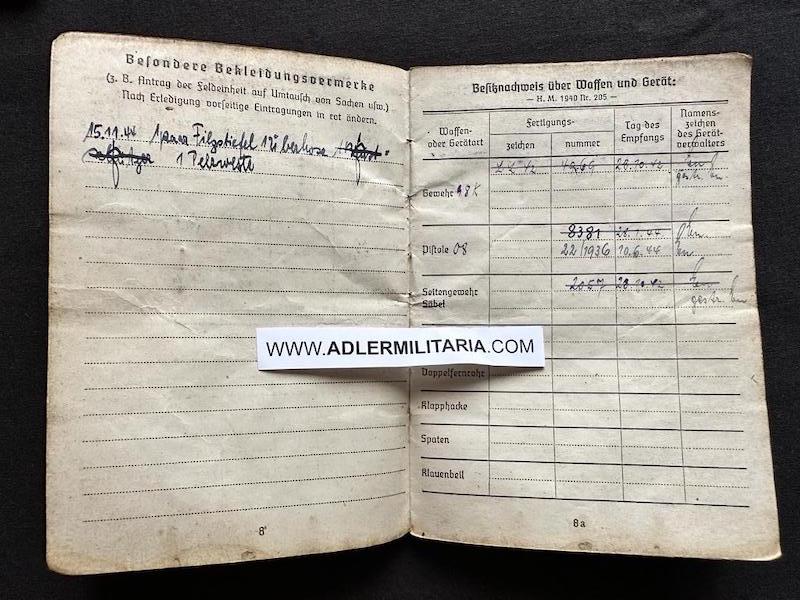 Besondere Bekleidungsvermerke
(z. B. Antrag der Feldeinheit auf Umtausch von Sachen usw.)
Nach Erledigung vorseitige Eintragungen in rot ändern.
15.11.44 1 paar Filzstiefel 1 Überhose
1 Pelzweste
8
Besitznachweis über Waffen und Gerät:
— H. M. 1940 Nr. 205 —
Waffen- oder Gerätart
Fertigungs-
zeichen
nummer
Tag des Empfangs
Namens- zeichen des Gerät- verwalters
Gewehr 98k 4269 28.10.42
gestr.
8381 28.1.44
Pistole 08 22/1936 10.6.44
Seitengewehr 2057 28.10.42
Säbel gestr.
WWW.ADLERMILITARIA.COM
Doppelfernrohr
Klapphacke
Spaten
Klauenbeil
8a